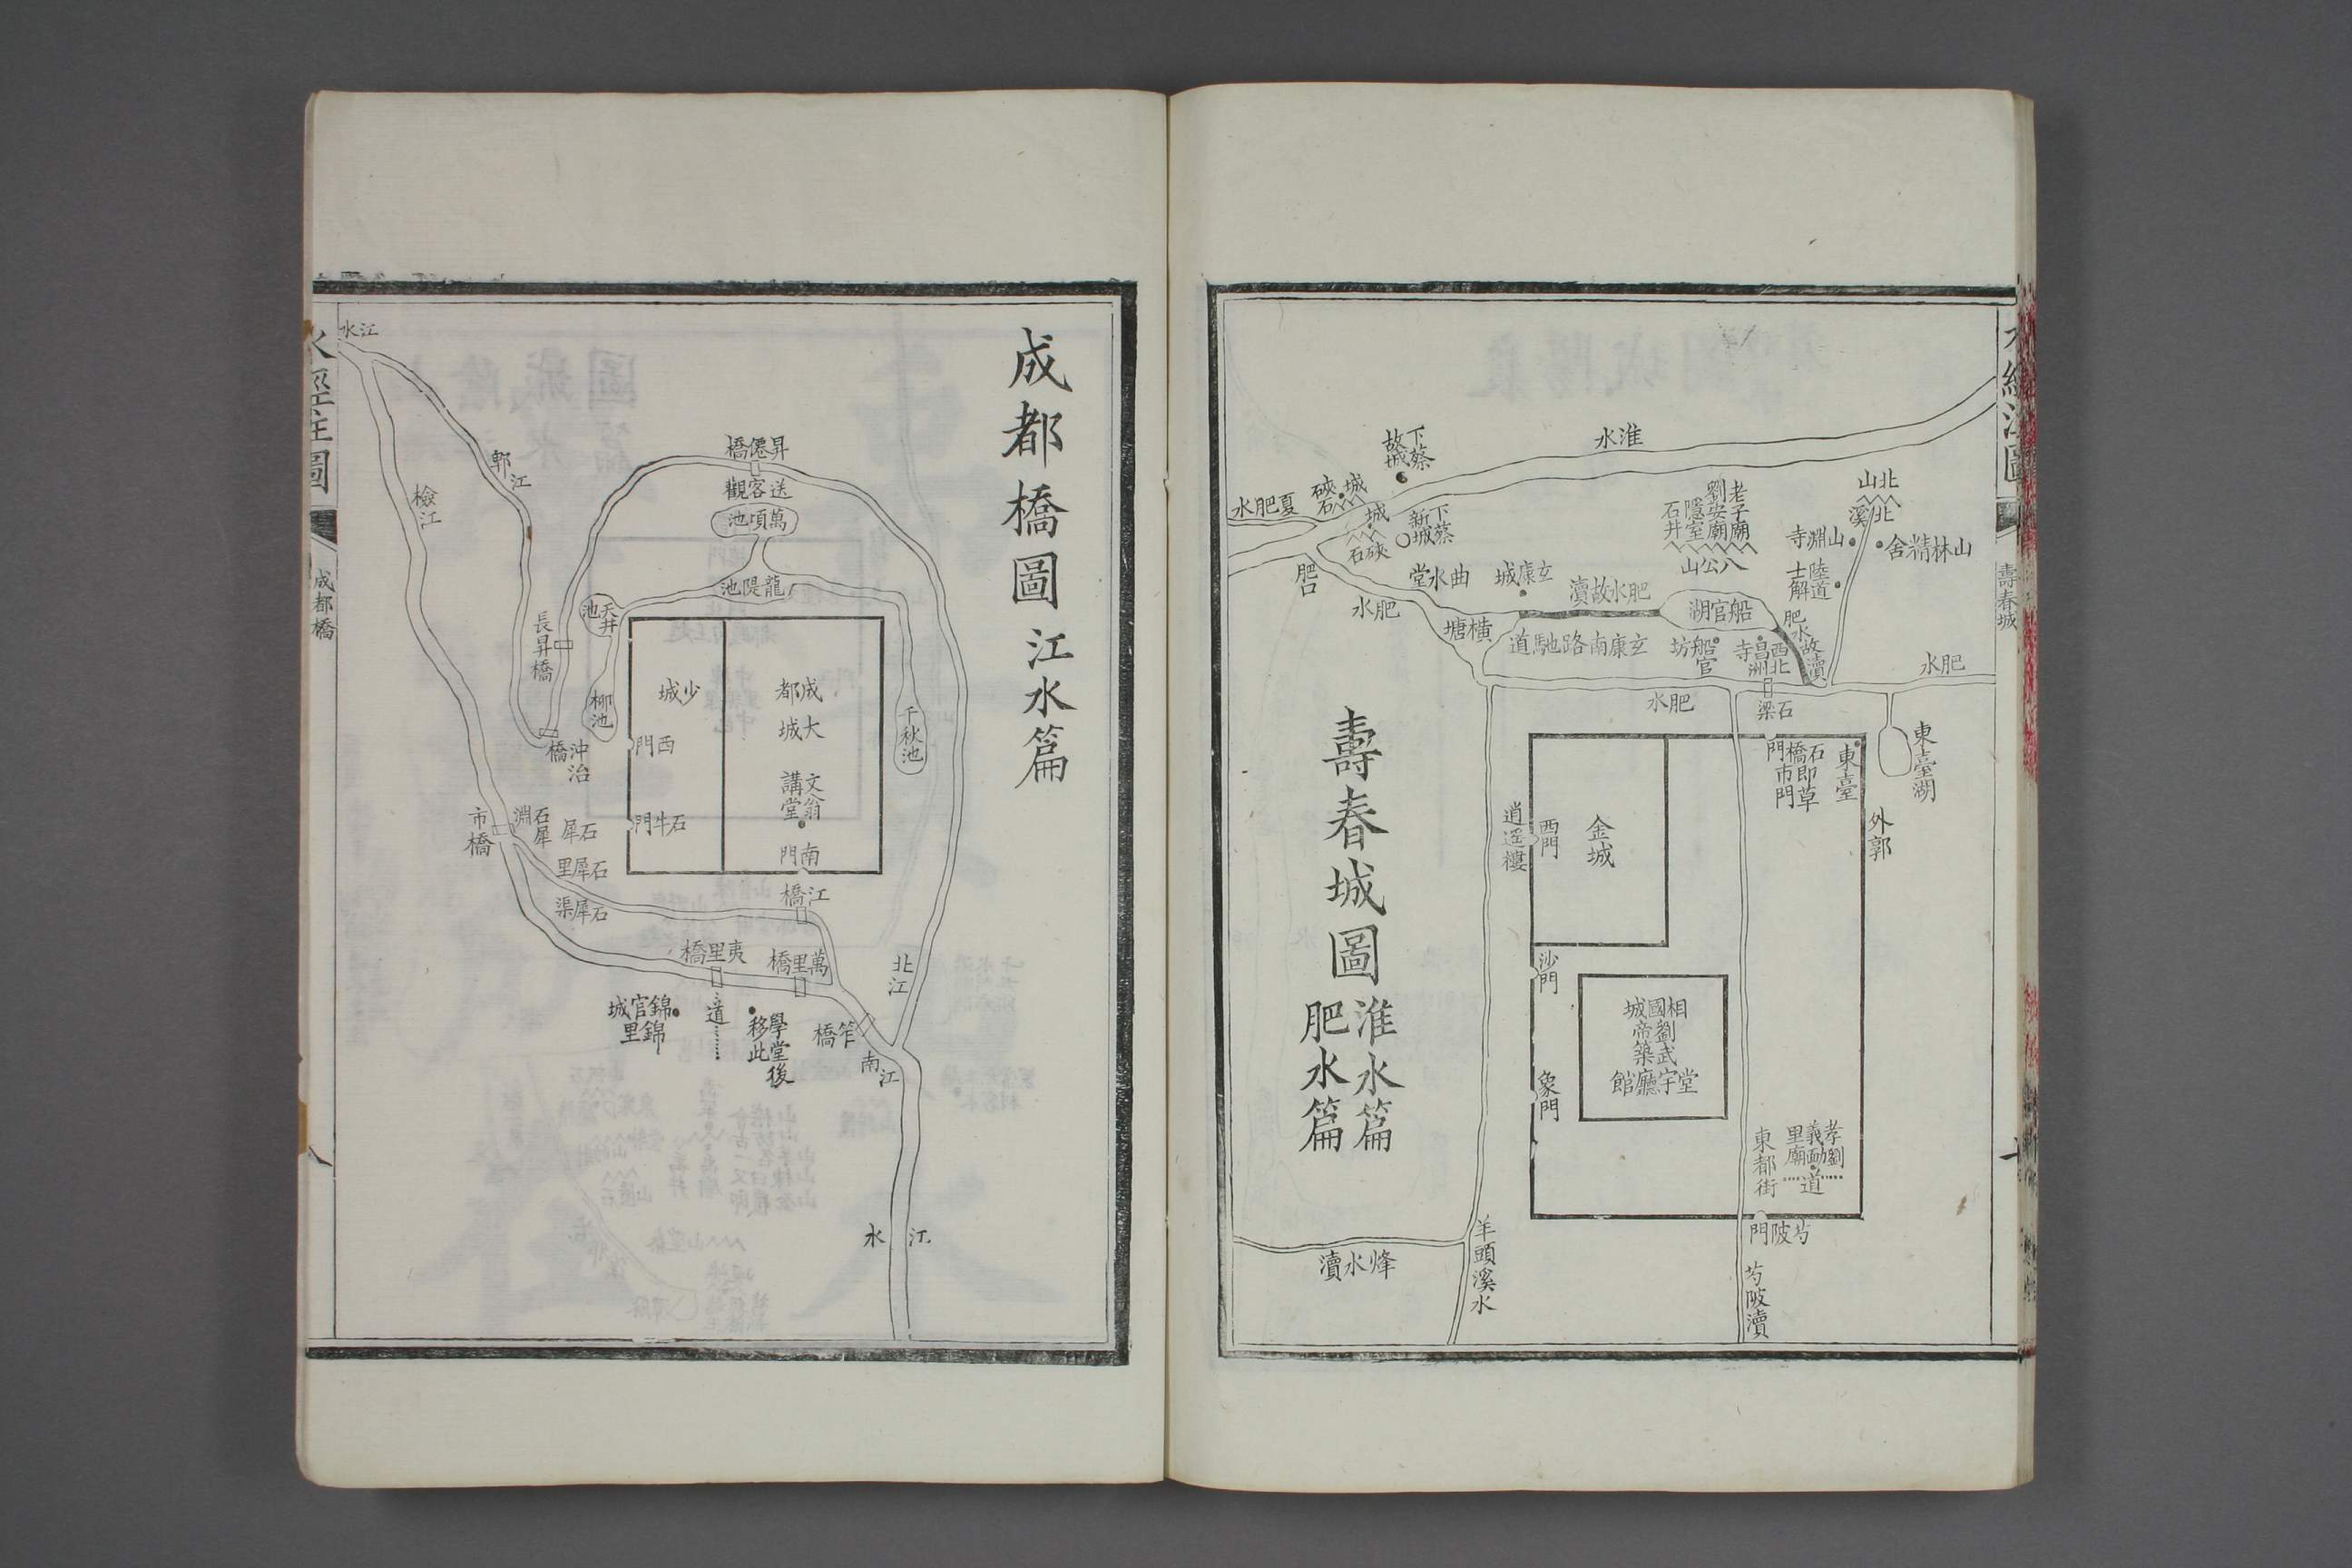 壽春城圖
淮水篇
肥水篇
淮水
下蔡
故城
城
硤石
夏肥水
城
硤石
下蔡
新城
肥口
肥水
曲水堂
玄康城
肥水故瀆
船官湖
橫塘
玄康南路馳道
船官
坊
西北
昌洲
寺
肥水故瀆
老子廟
劉安廟
隱室
石井
八公山
北山
北溪
山淵寺
山林精舍
陸道
士解
肥水
肥水
石梁
石橋門即草市門
東臺
東臺湖
外郭
逍遙樓
西門
金城
沙門
象門
相國城
劉武帝築
堂宇廳館
東都街
孝義里
劉勔廟
道
芍陂門
芍陂瀆
羊頭溪水
烽水瀆
壽春城
成都橋圖
江水篇
江水
郫江
檢江
昇僊橋
送客觀
萬頃池
龍隄池
天井池
長昇橋
柳池
沖治橋
千秋池
少城
成都大城
西門
文翁講堂
石牛門
南門
市橋
石犀淵
石犀
石犀里
石犀渠
江橋
夷里橋
萬里橋
錦官城
錦里
道
學堂後移此
笮橋
北江
南江
江水
水經注圖
成都橋
八